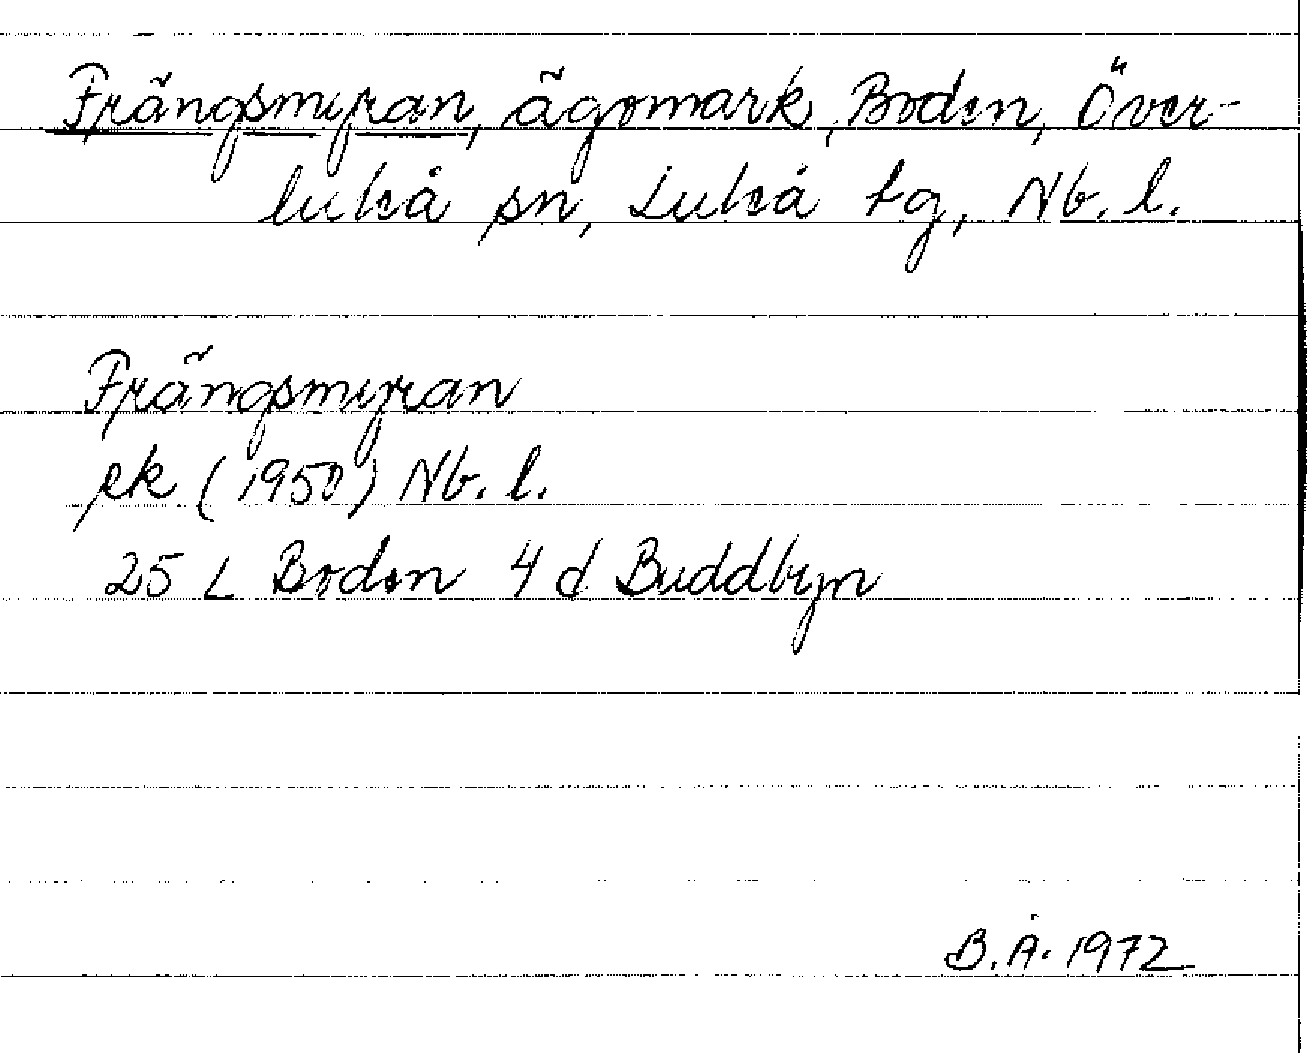 Frängsmyran, ägomark, Boden, Över-
luleå sn, Luleå tg, Nb. l.
Frängsmyran
ek (1950) Nb. l.
25 L Boden 4 d Buddbyn
B.Å. 1972